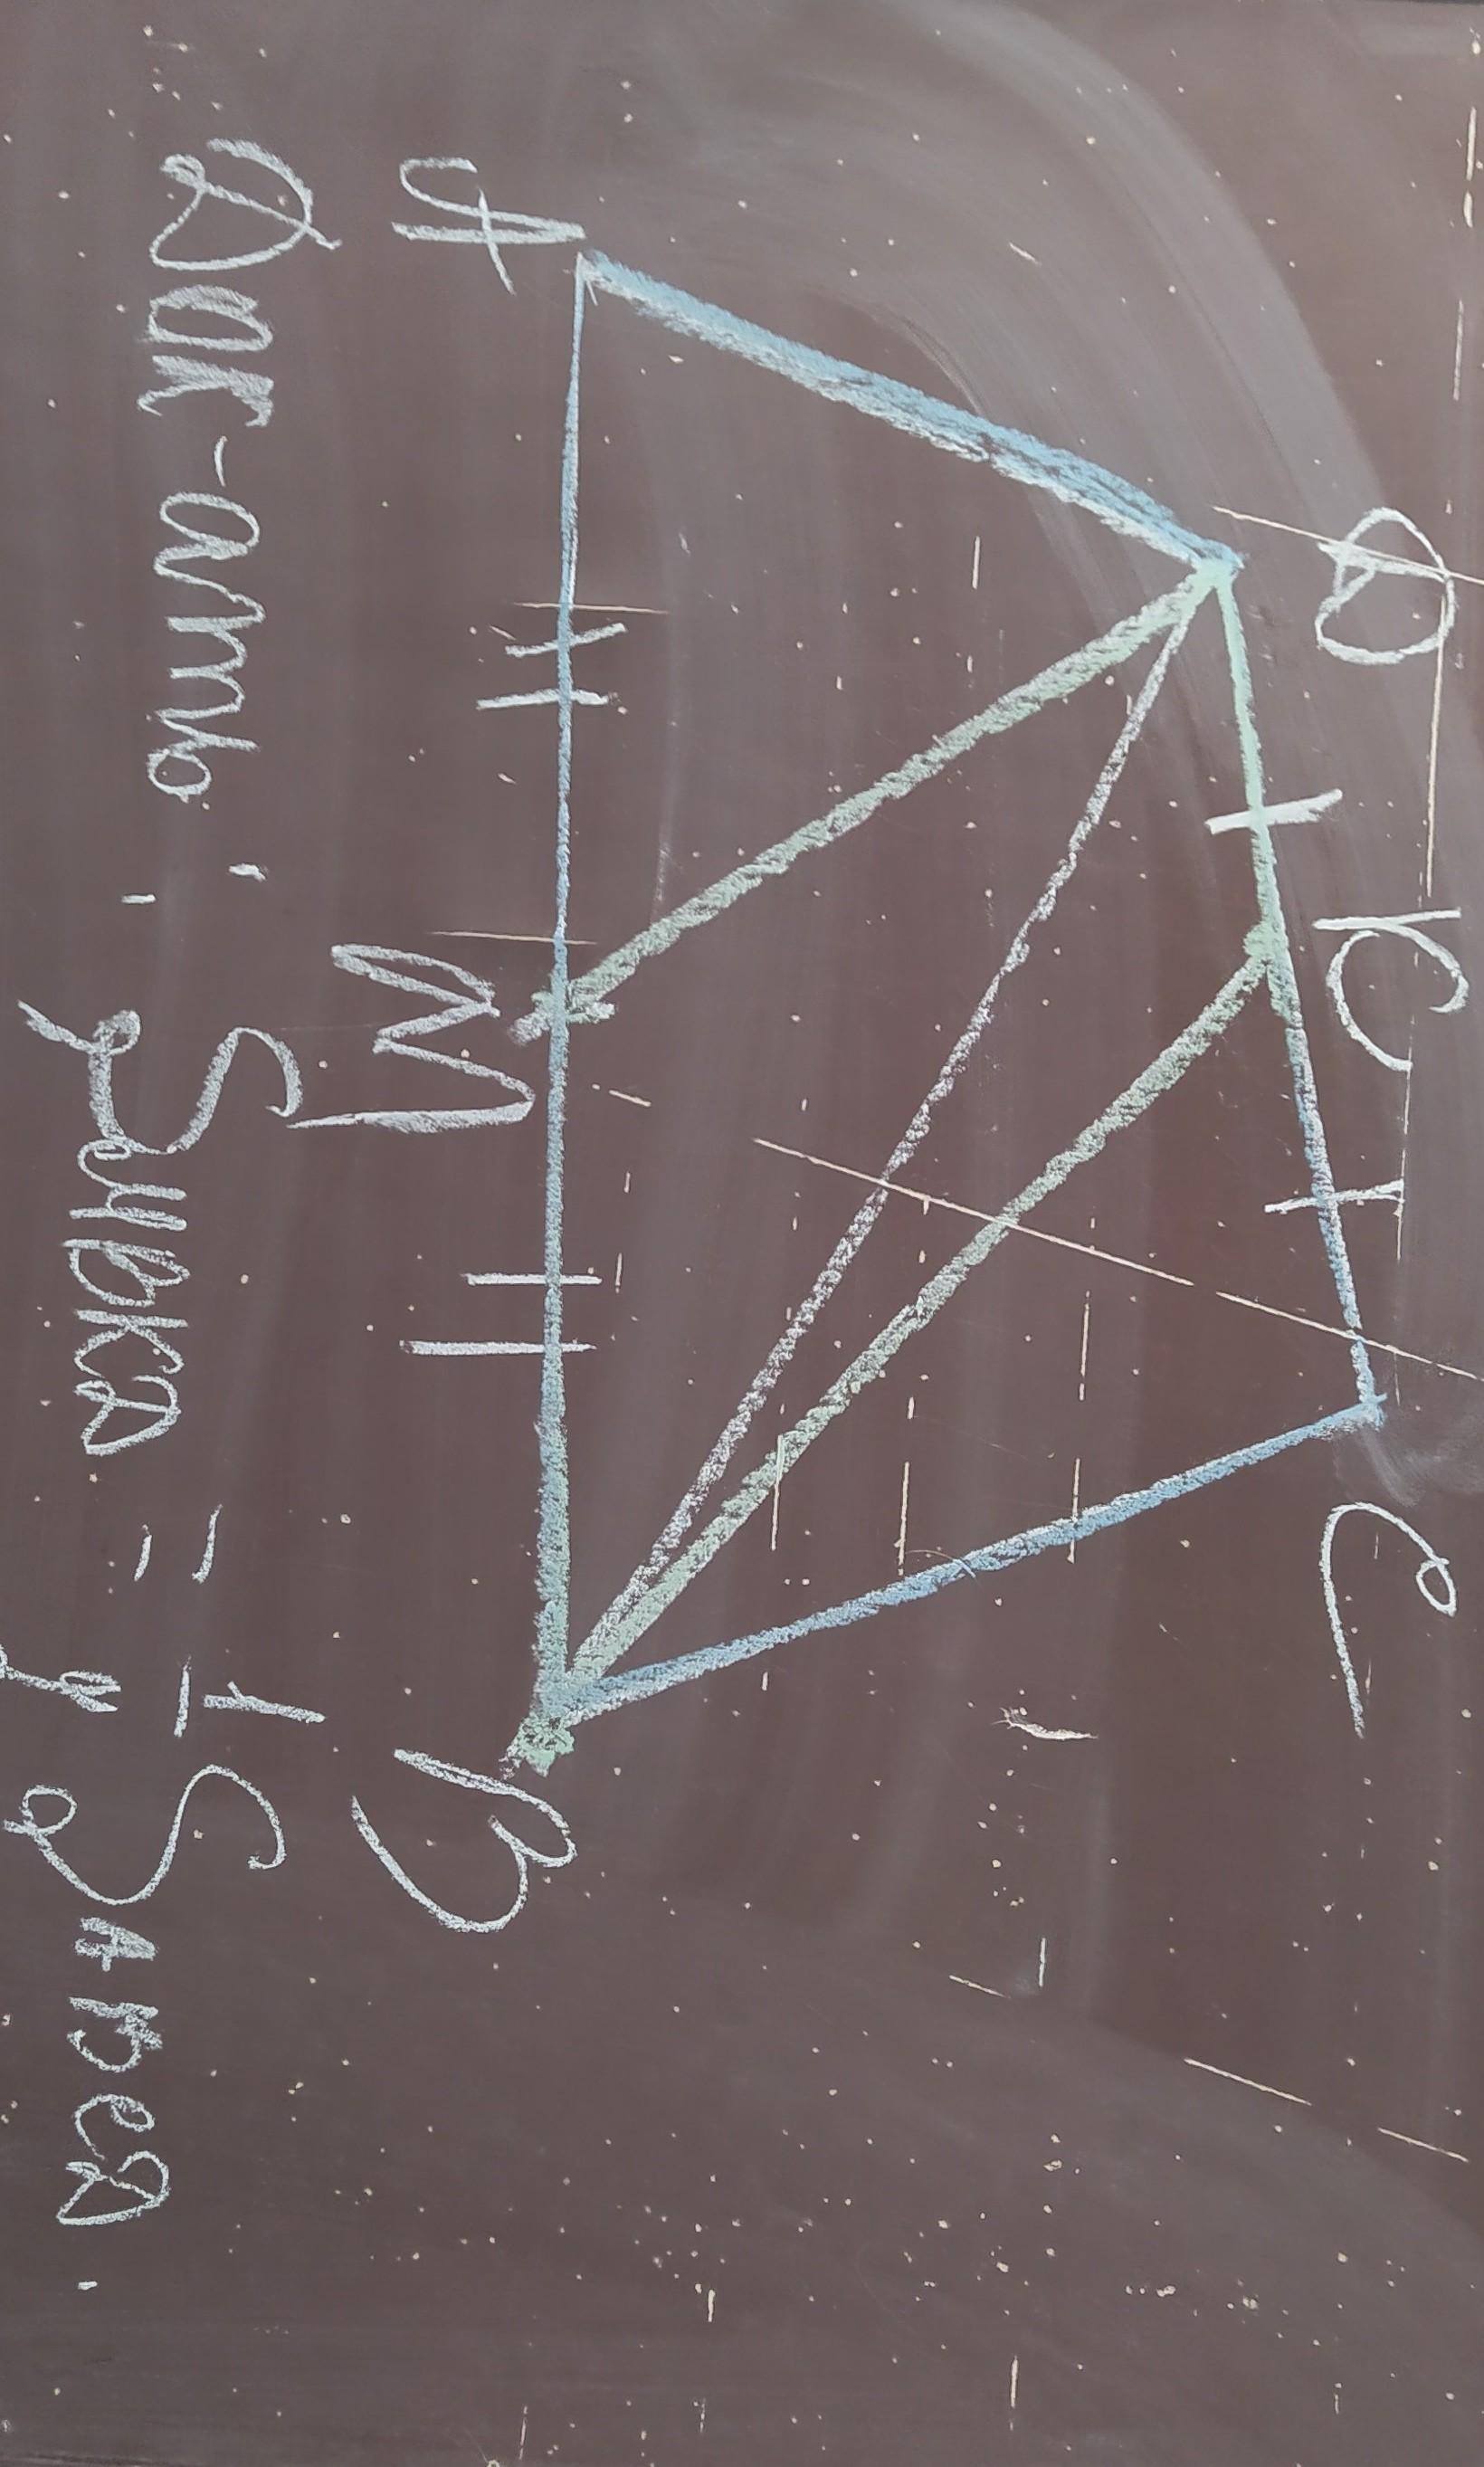 D K C
A M B
Док-ать: S MBKD = 1/2 S ABCD.